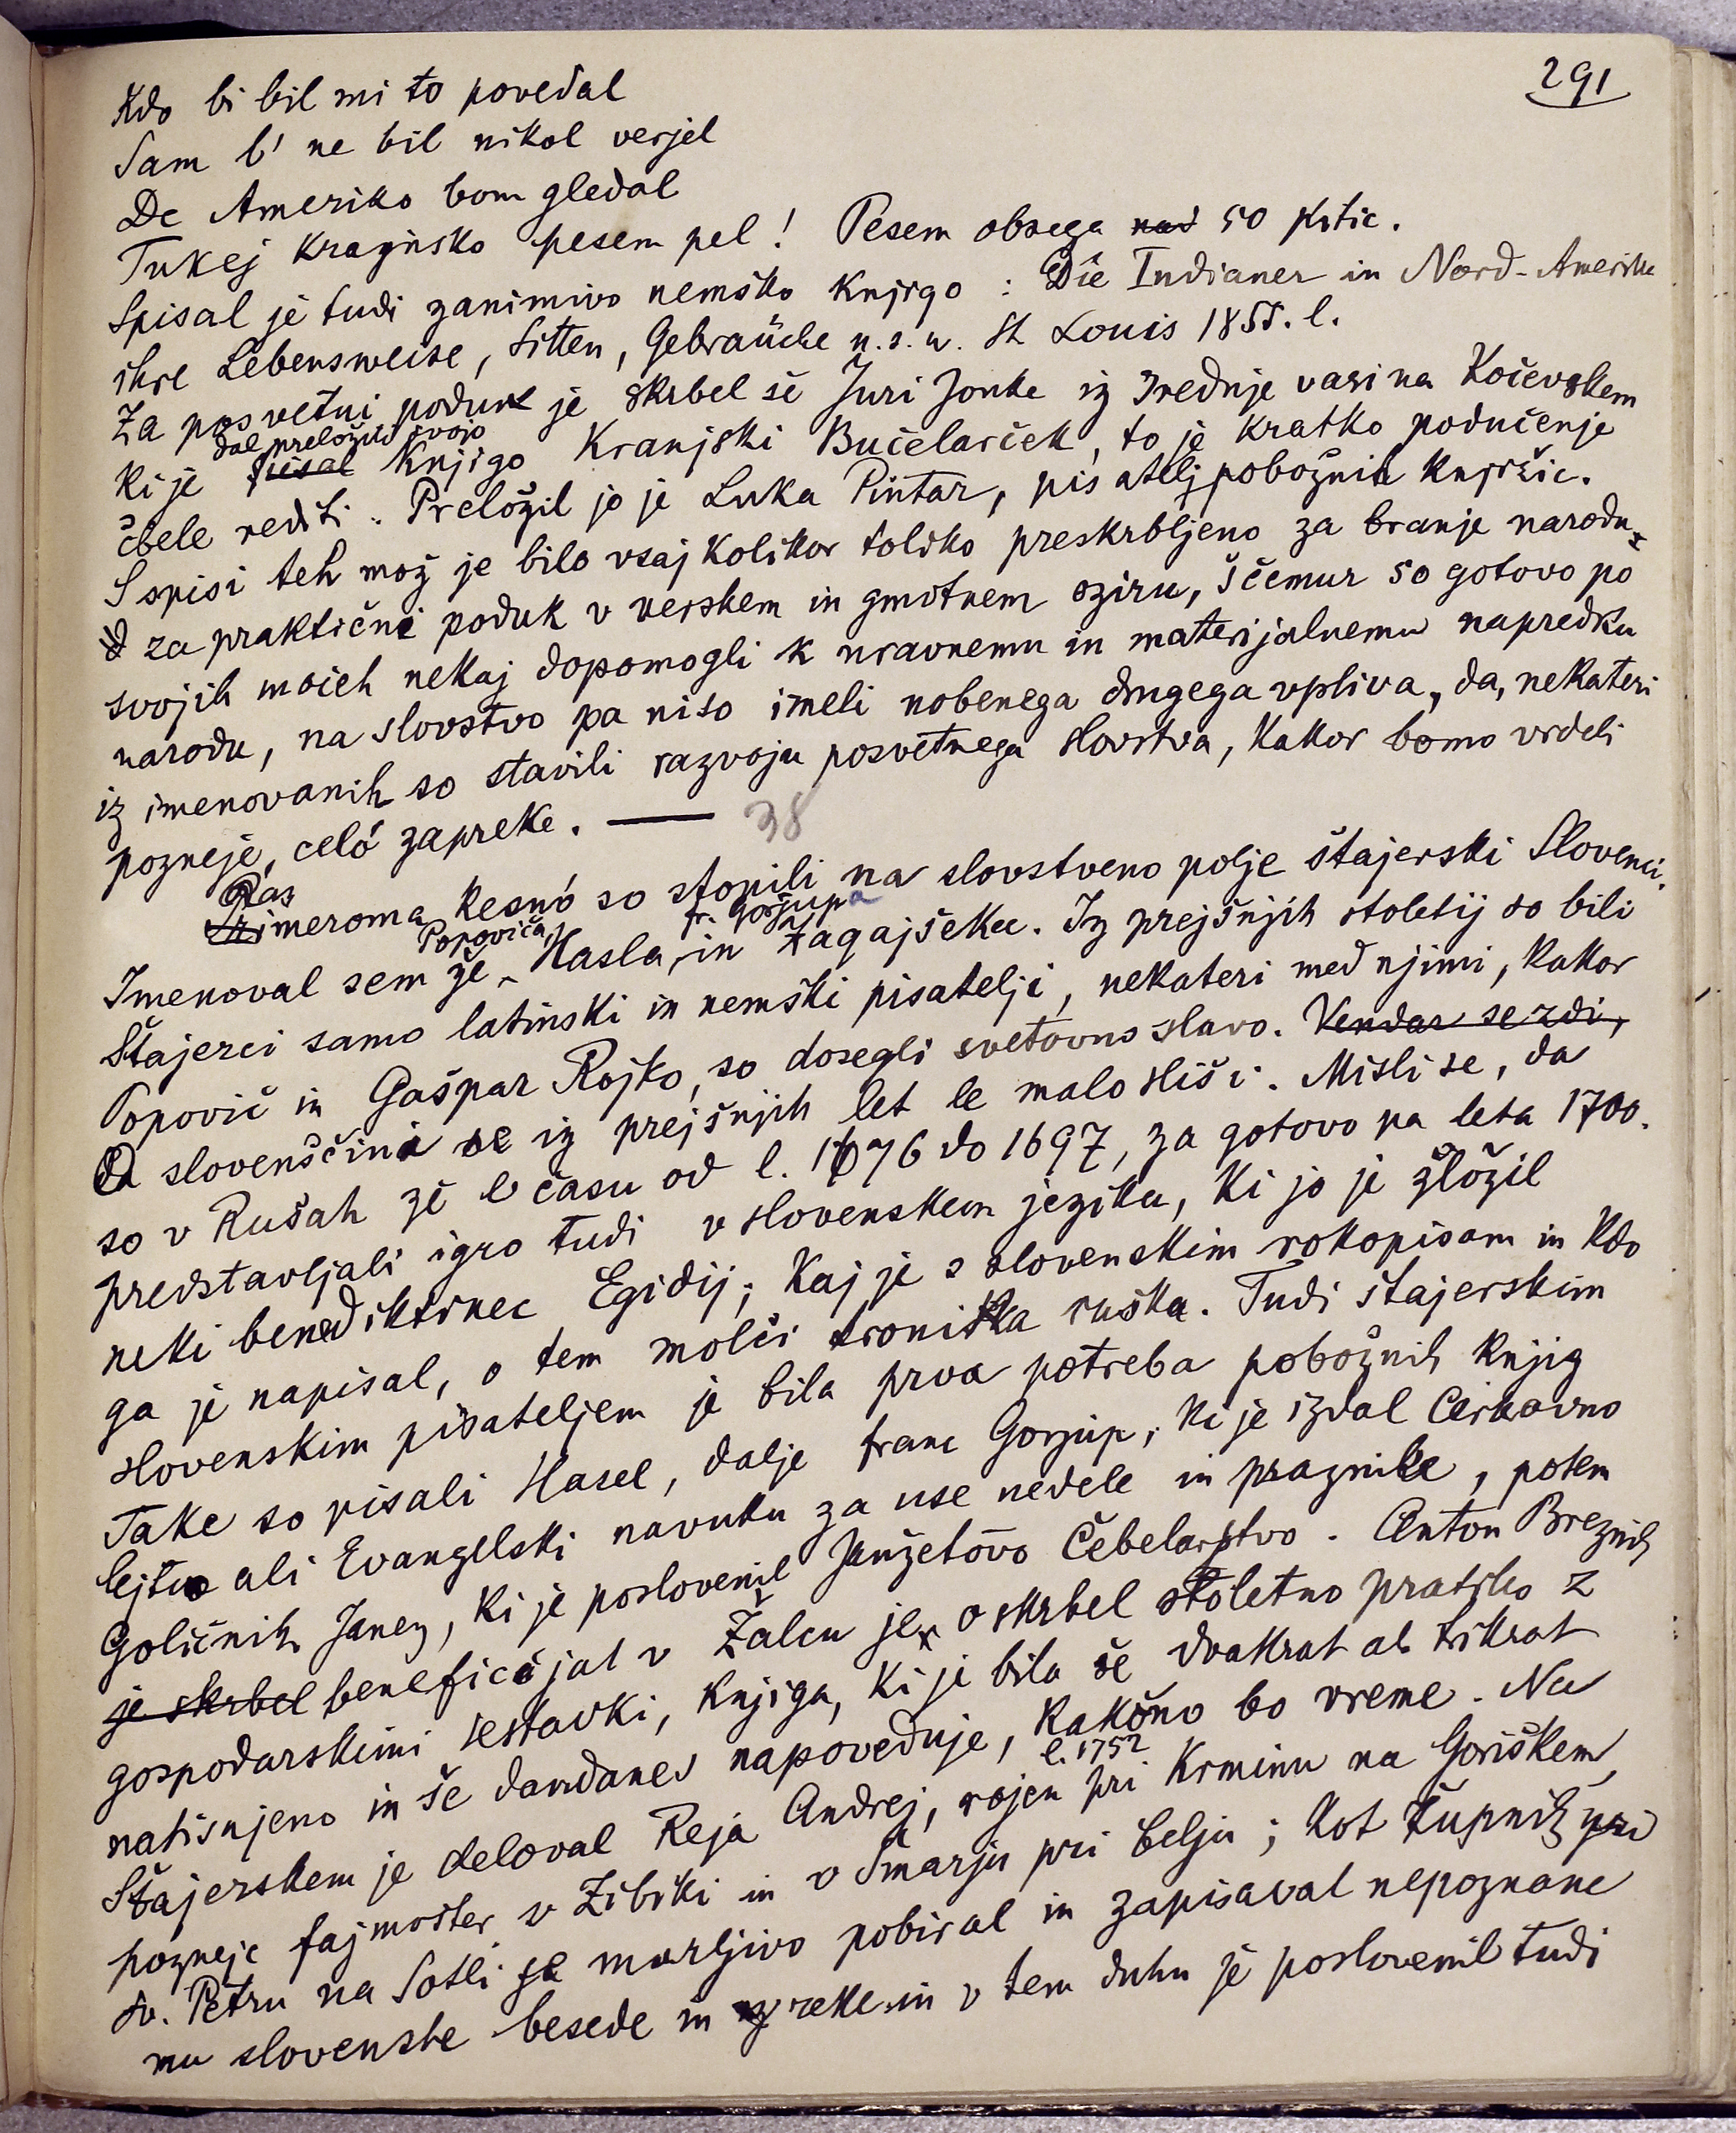 291
Kdo bi bil mi to povedal
Sam b' ne bil nikol verjel
De Ameriko bom gledal
Tukej krajnsko pesem pel! Pesem obsega nad 50 kitic.
Spisal je tudi zanimivo nemško knjigo: Die Indianer in Nord-Amerika
ihre Lebensweise, Sitten, Gebräuche u.s.w. St Louis 1855. l.
Za posvetni poduk je skrbel še Juri Jonke iz Srednje vasi na Kočevskem
dal preložiti svojo
ki je pisal knjigo Kranjski Bučelarček, to je kratko podučenje
čbele rediti. Preložil jo je Luka Pintar, pisatelj pobožnih knjižic.
S spisi teh mož je bilo vsaj kolikor toliko preskrbljeno za branje narodu
za praktični poduk v verskem in gmotnem oziru, s čemur so gotovo po
svojih močeh nekaj dopomogli k nravnemu in materijalnemu napredku
narodu, na slovstvo pa niso imeli nobenega drugega vpliva, da, nekateri
iz imenovanih so stavili razvoju posvetnega slovstva, kakor bomo videli
pozneje, celó zapreke. — 38
Raz
imeroma kesnó so stopili na slovstveno polje štajerski Slovenci.
Popoviča, fr. Gorjupa
Imenoval sem že Hasla, in Zagajšeka. Iz prejšnjih stoletij so bili
Štajerci samo latinski in nemški pisatelji, nekateri med njimi, kakor
Popovič in Gašpar Rojko, so dosegli svetovno slavo. Vendar se zdi,
O slovenščini se iz prejšnjih let le malo sliši. Misli se, da
so v Rušah že v času od l. 1676 do 1697, za gotovo pa leta 1700.
predstavljali igro tudi v slovenskem jeziku, ki jo je zložil
neki benediktinec Egidij; kaj je s slovenskim rokopisom in kdo
ga je napisal, o tem molči kronika ruška. Tudi štajerskim
slovenskim pisateljem je bila prva potreba pobožnih knjig
Take so pisali Hasel, dalje franc Gorjup, ki je izdal Cirkovno
lejto ali Evangelski navuku za use nedele in praznike, potem
Goličnik Janez, ki je poslovenil Janžetovo Čebelarstvo. Anton Breznik
je skrbel beneficijat v Žalcu je oskrbel stoletno pratiko z
gospodarskimi sestavki, knjiga, ki je bila še dvakrat ali trikrat
natisnjeno in še dandanes napoveduje, kakšno bo vreme. Na
l. 1752
Štajerskem je deloval Reja Andrej, rojen pri Krminu na Goriškem,
pozneje fajmošter v Zibiki in v Šmarju pri Celju; kot župnik pri
sv. Petru na Sotli je marljivo pobiral in zapisaval nepoznane
mu slovenske besede in izreke in v tem duhu je poslovenil tudi